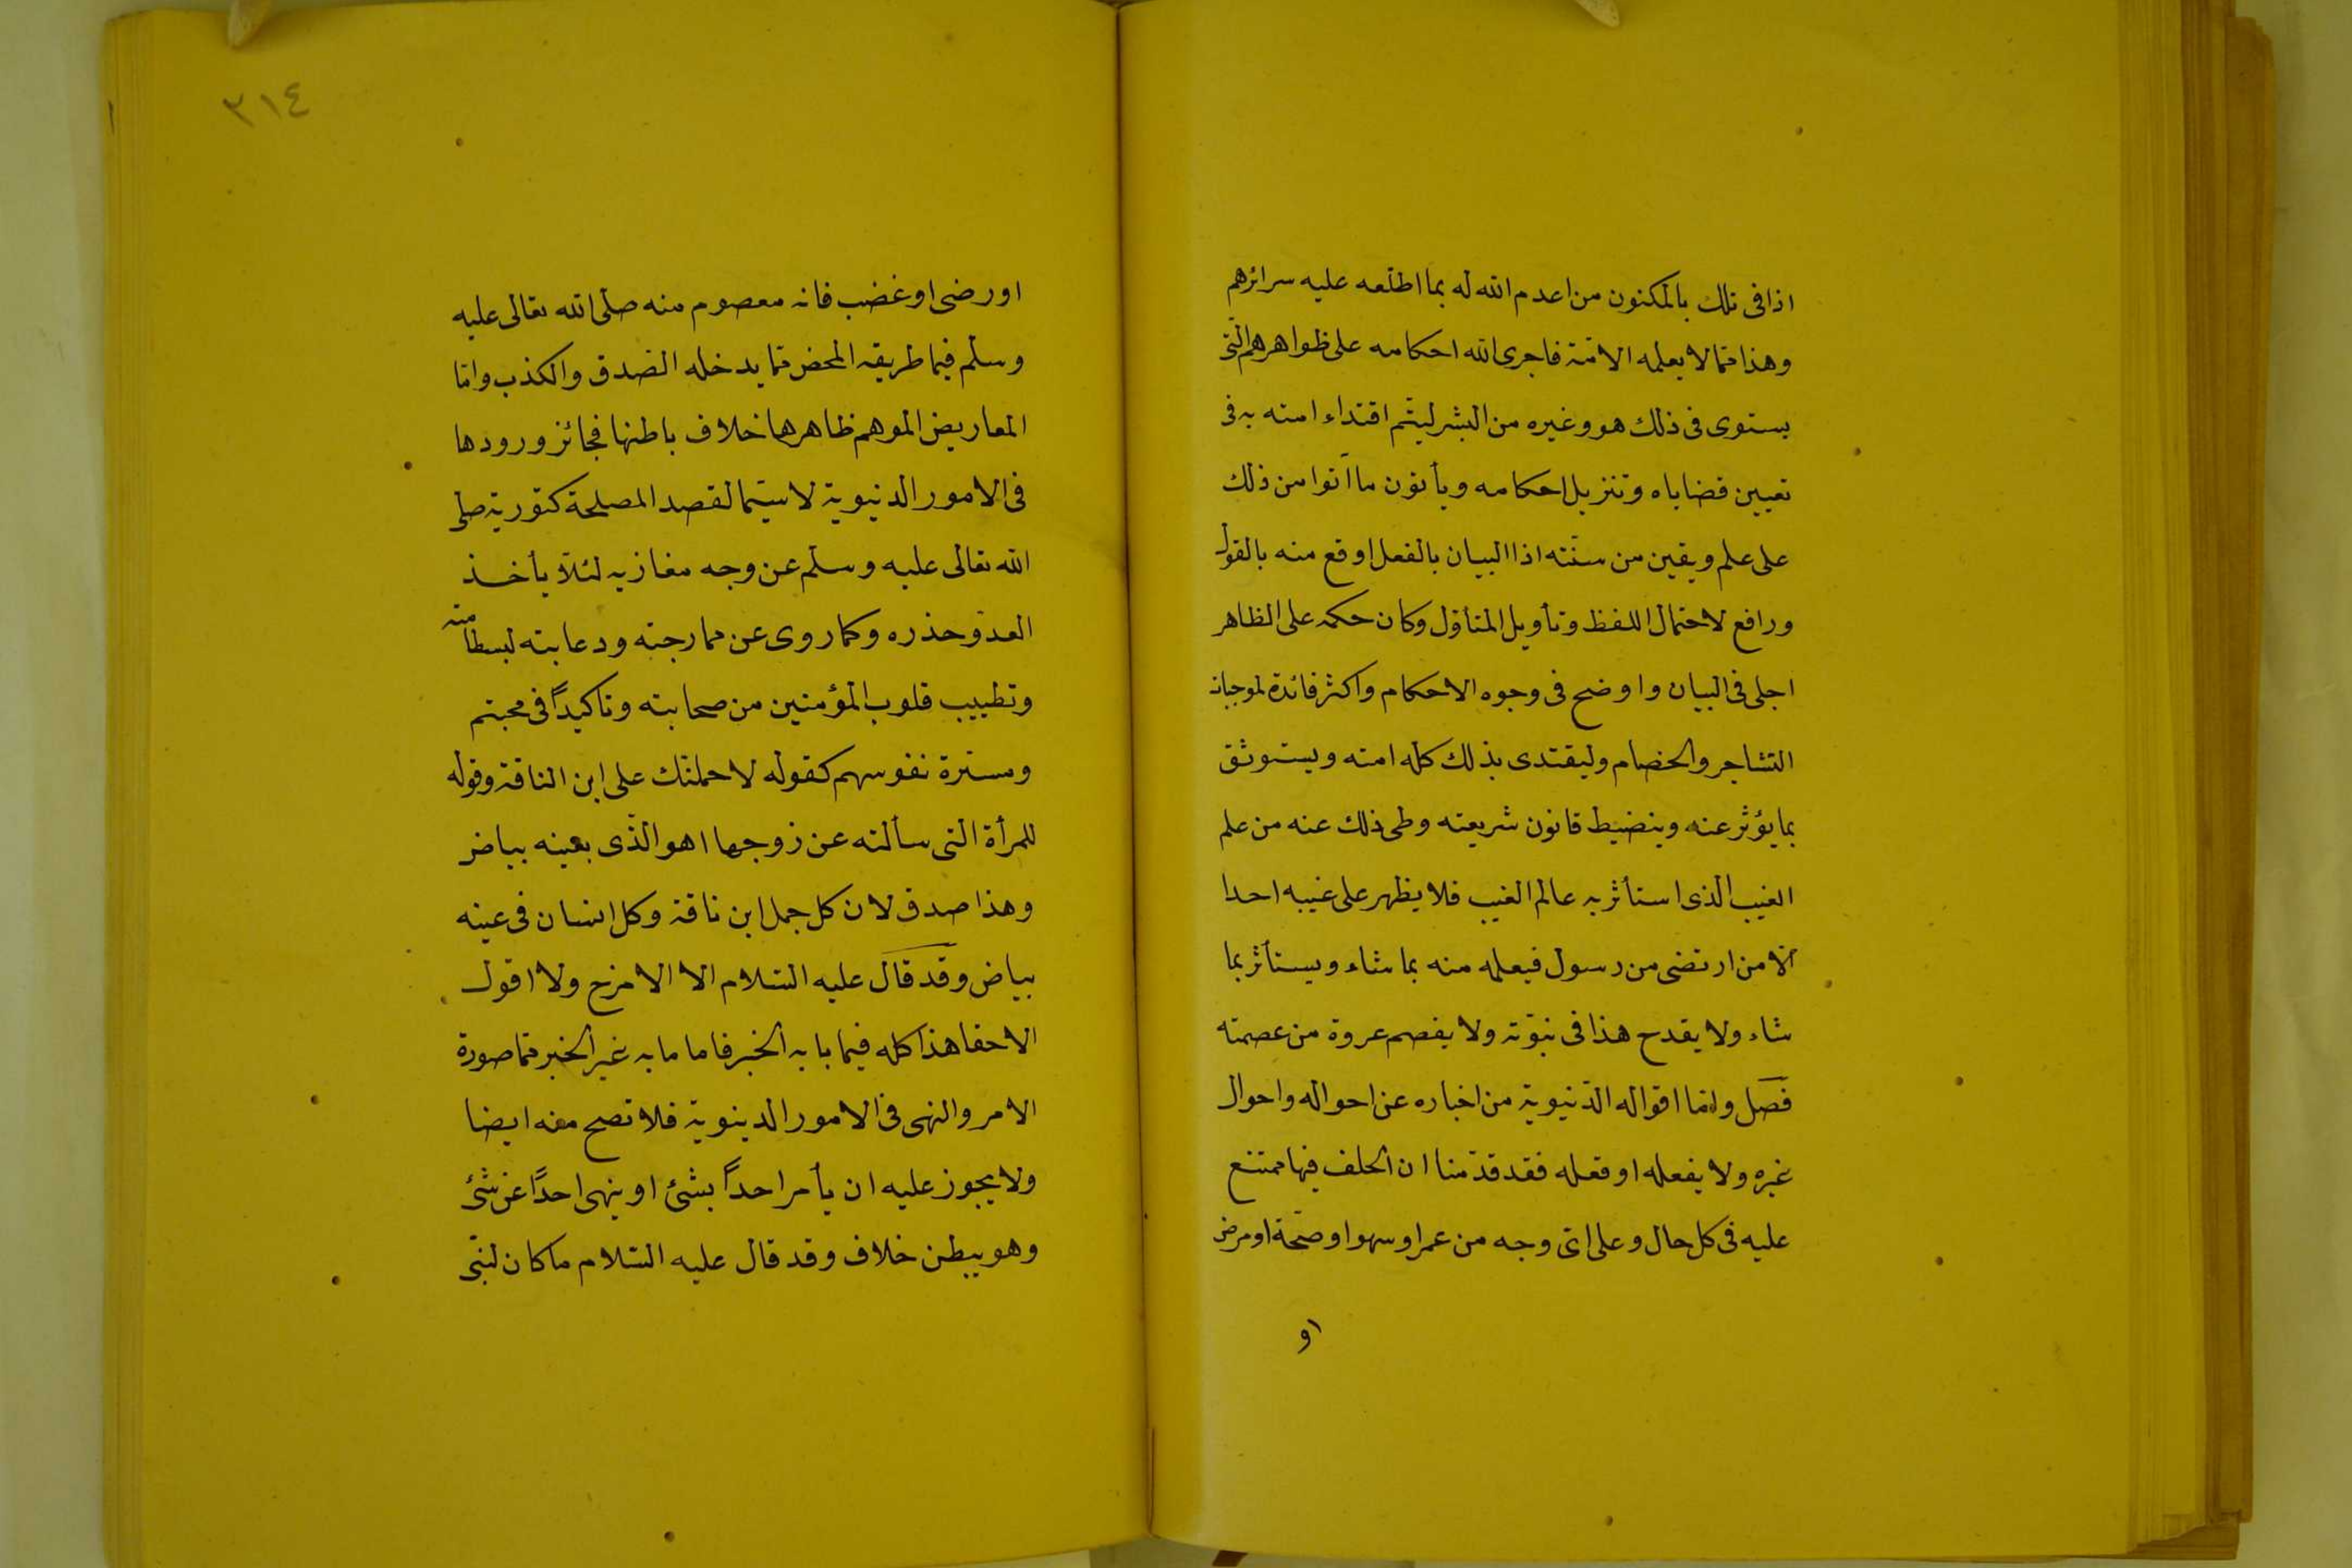 اذا فى تلك بالمكنون من اعدم الله له بما اطلعه عليه سرائرهم
وهذا ممّا لا يعلمه الامّة فاجرى الله احكامه على ظواهرهم الّتى
يستوى فى ذلك هو وغيره من البشر ليتّم اقتداء امته به فى
تعيين قضاياه وتنزيل احكامه ويأتون ما آتوا من ذلك
على علم ويقين من سنّته اذا البيان بالفعل اوقع منه بالقول
ورافع لاحتمال اللفظ وتأويل المتأوّل وكان حكمه على الظاهر
اجلى فى البيان واوضح فى وجوه الاحكام واكثر فائدة لموجبات
التشاجر والخصام وليقتدى بذلك كله امته ويستوثق
بما يؤثر عنه وينضبط قانون شريعته وطى ذلك عنه من علم
الغيب الذى استأثر به عالم الغيب فلا يظهر على غيبه احدا
الا من ارتضى من رسول فيعلمه منه بما شاء ويستأثر بما
شاء ولا يقدح هذا فى نبوّته ولا يفصم عروة من عصمته
فصل وامّا اقواله الدّنيوية من اخباره عن احواله واحوال
غيره ولا يفعله او فعله فقد قدّمنا ان الخلف فيها ممتنع
عليه فى كل حال وعلى اىّ وجه من عمر او سهو او صحّة او مرض
او
٣١٤
او رضى او غضب فانه معصوم منه صلّى الله تعالى عليه
وسلّم فيما طريقه المحض ممّا يدخله الصّدق والكذب وامّا
المعاريض الموهم ظاهرها خلاف باطنها فجائز ورودها
فى الامور الدنيوية لا سيّما لقصد المصلحة كتوريته صلى
الله تعالى عليه وسلّم عن وجه مغازيه لئلاّ يأخذ
العدوّ حذره وكما روى عن ممارجته ودعابته لبسط امّته
وتطييب قلوب المؤمنين من صحابته وتاكيداً فى محبتهم
ومسترة نفوسهم كقوله لاحملنّك على ابن الناقة وقوله
للمرأة التى سألته عن زوجها اهو الّذى بعينه بياض
وهذا صدق لان كل جمل ابن ناقة وكل انسان فى عينه
بياض وقد قال عليه السّلام الا الامزح ولا اقول
الا حقا هذا كله فيما بابه الخبر فاما ما به غير الخبر ممّا صورة
الامر والنهى فى الامور الدينوية فلا تصح مغه ايضا
ولا يجوز عليه ان يأمر احداً بشئ او ينهى احدًا عن شئ
وهو يبطن خلاف وقد قال عليه السّلام ما كان لنبّى